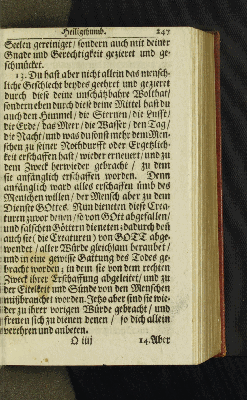 Heiligthumb. 247
Seelen gereiniget / sondern auch mit deiner
Gnade und Gerechtigkeit gezieret und ge-
schmücket.
13. Du hast aber nicht allein das mensch-
liche Geschlecht beydes geehret und gezieret
durch diese deine unschätzbahre Wolthat /
sondern eben durch diese deine Mittel hast du
auch den Himmel / die Sternen / die Lufft /
die Erde / das Meer / die Wasser / den Tag /
die Nacht / und was du sonst mehr dem Men-
schen zu seiner Nothdurfft oder Ergetzlich-
keit erschaffen hast / wieder erneuert / und zu
dem Zweck herwieder gebracht / zu dem
sie anfänglich erschaffen worden. Denn
anfänglich ward alles erschaffen umb des
Menschen willen / der Mensch aber zu dem
Dienste Gottes. Nun dieneten diese Crea-
turen zwar denen / so von GOtt abgefallen /
und falschen Göttern dieneten; dadurch denn
auch sie (die Creaturen) von GOTT abge-
wendet / aller Würde gleichsam beraubet /
und in eine gewisse Gattung des Todes ge-
bracht worden; in dem sie von dem rechten
Zweck ihrer Erschaffung abgeleitet / und zu
der Eitelkeit und Sünde von den Menschen
mißbrauchet worden. Jetzo aber sind sie wie-
der zu ihrer vorigen Würde gebracht / und
freuen sich zu dienen denen / so dich allein
verehren und anbeten.
Q iiij 14. Aber